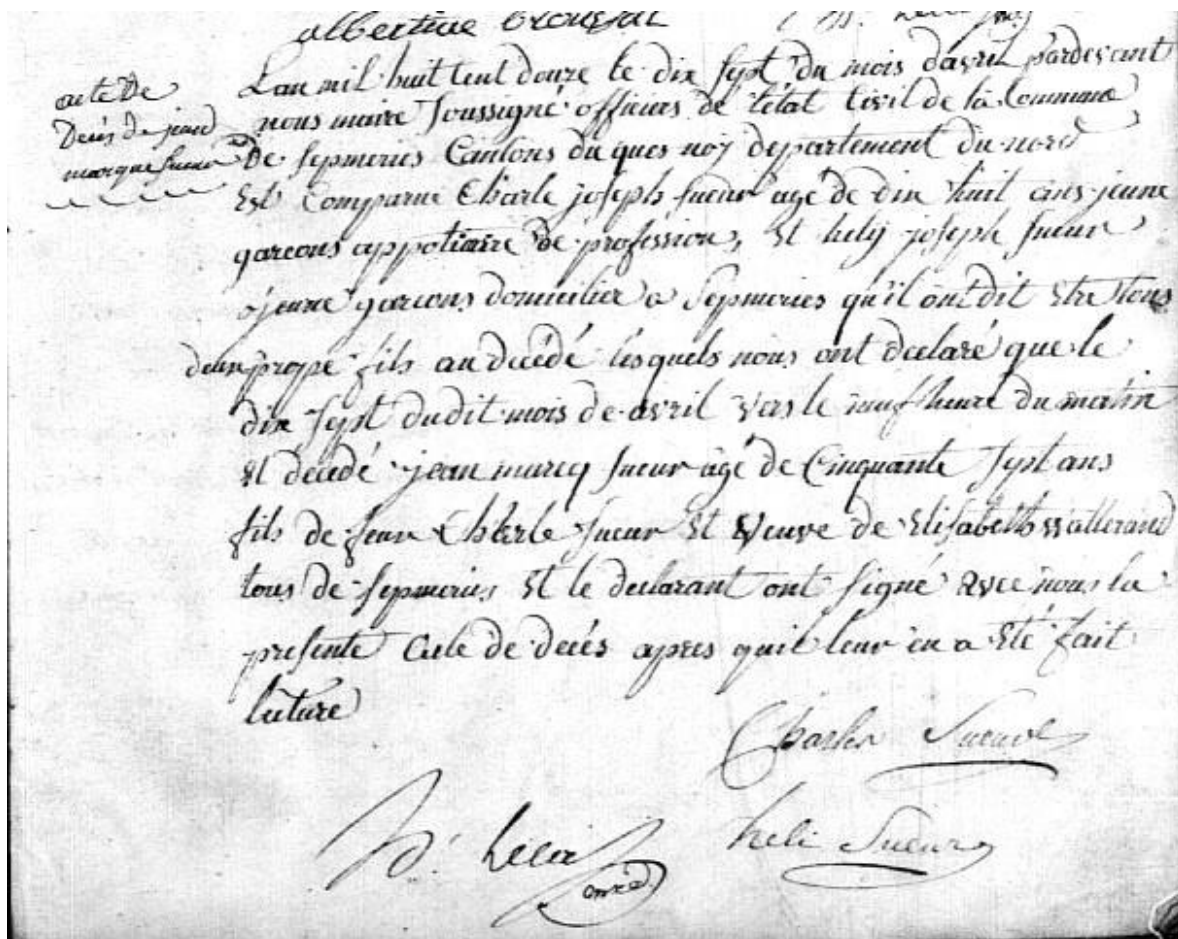 albertine
acte De
Decés de jean
marque sueur
Lan mil huit cent douze le dix sept du mois davril pardevant
nous maire soussigné officiers de l'état Civil de la Commune
De sepmeries Cantons du ques noy departement du nord
Est Comparue Charle joseph sueur agé de dix huit ans jeune
garcons appotiaire de profession, Et hely joseph sueur
jeune garcons domicilier a Sepmeries qu'il ont dit Etre tous
deux prope fils au decédé lesquels nous ont declaré que le
dix sept dudit mois de avril vers le neuf heure du matin
Et decédé jean marcq sueur agé de Cinquante sept ans
fils de feux Charle sueur Et veuve de Elisabeth wallerand
tous de sepmeries Et le declarant ont signé avec nous la
presente acte de decés apres quil leur en a Eté fait
lecture
Charles Sueur
heli Sueur